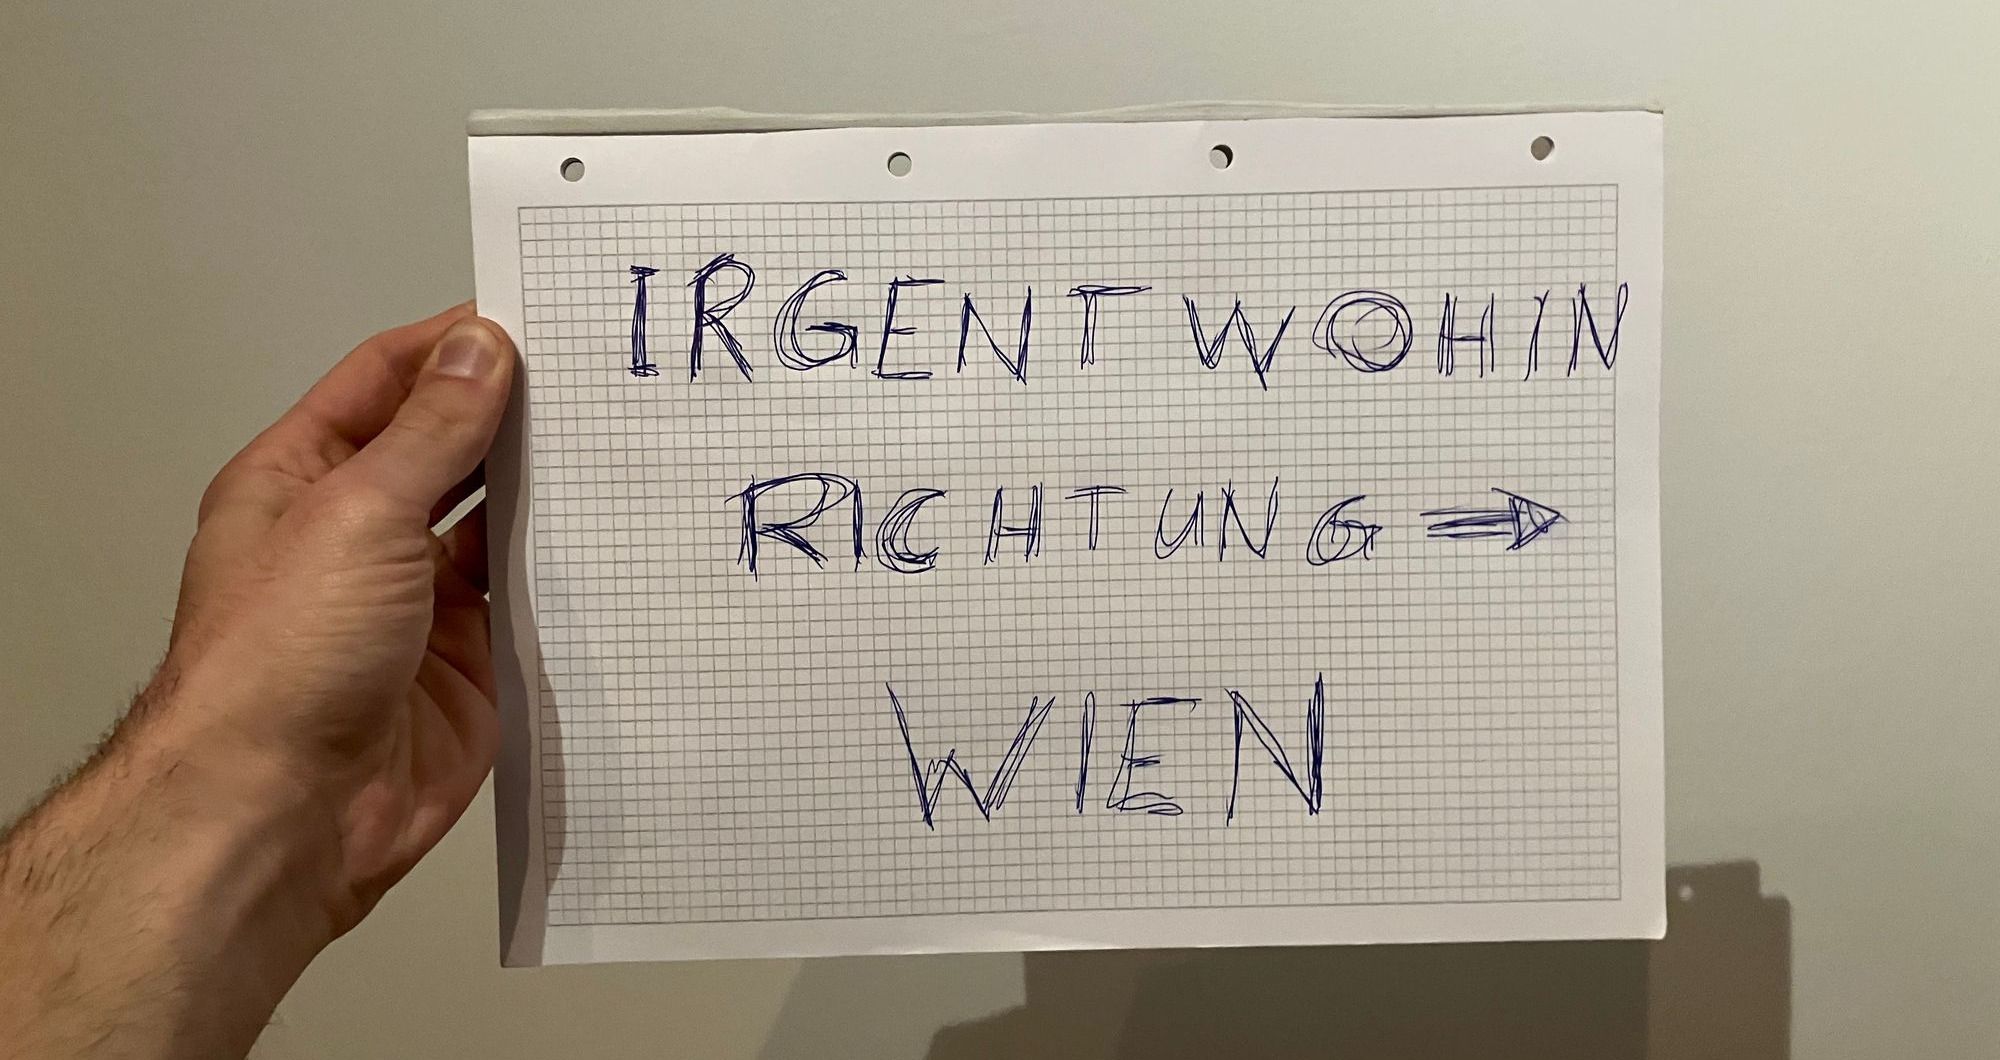 IRGENT WOHIN
RICHTUNG ⇒
WIEN